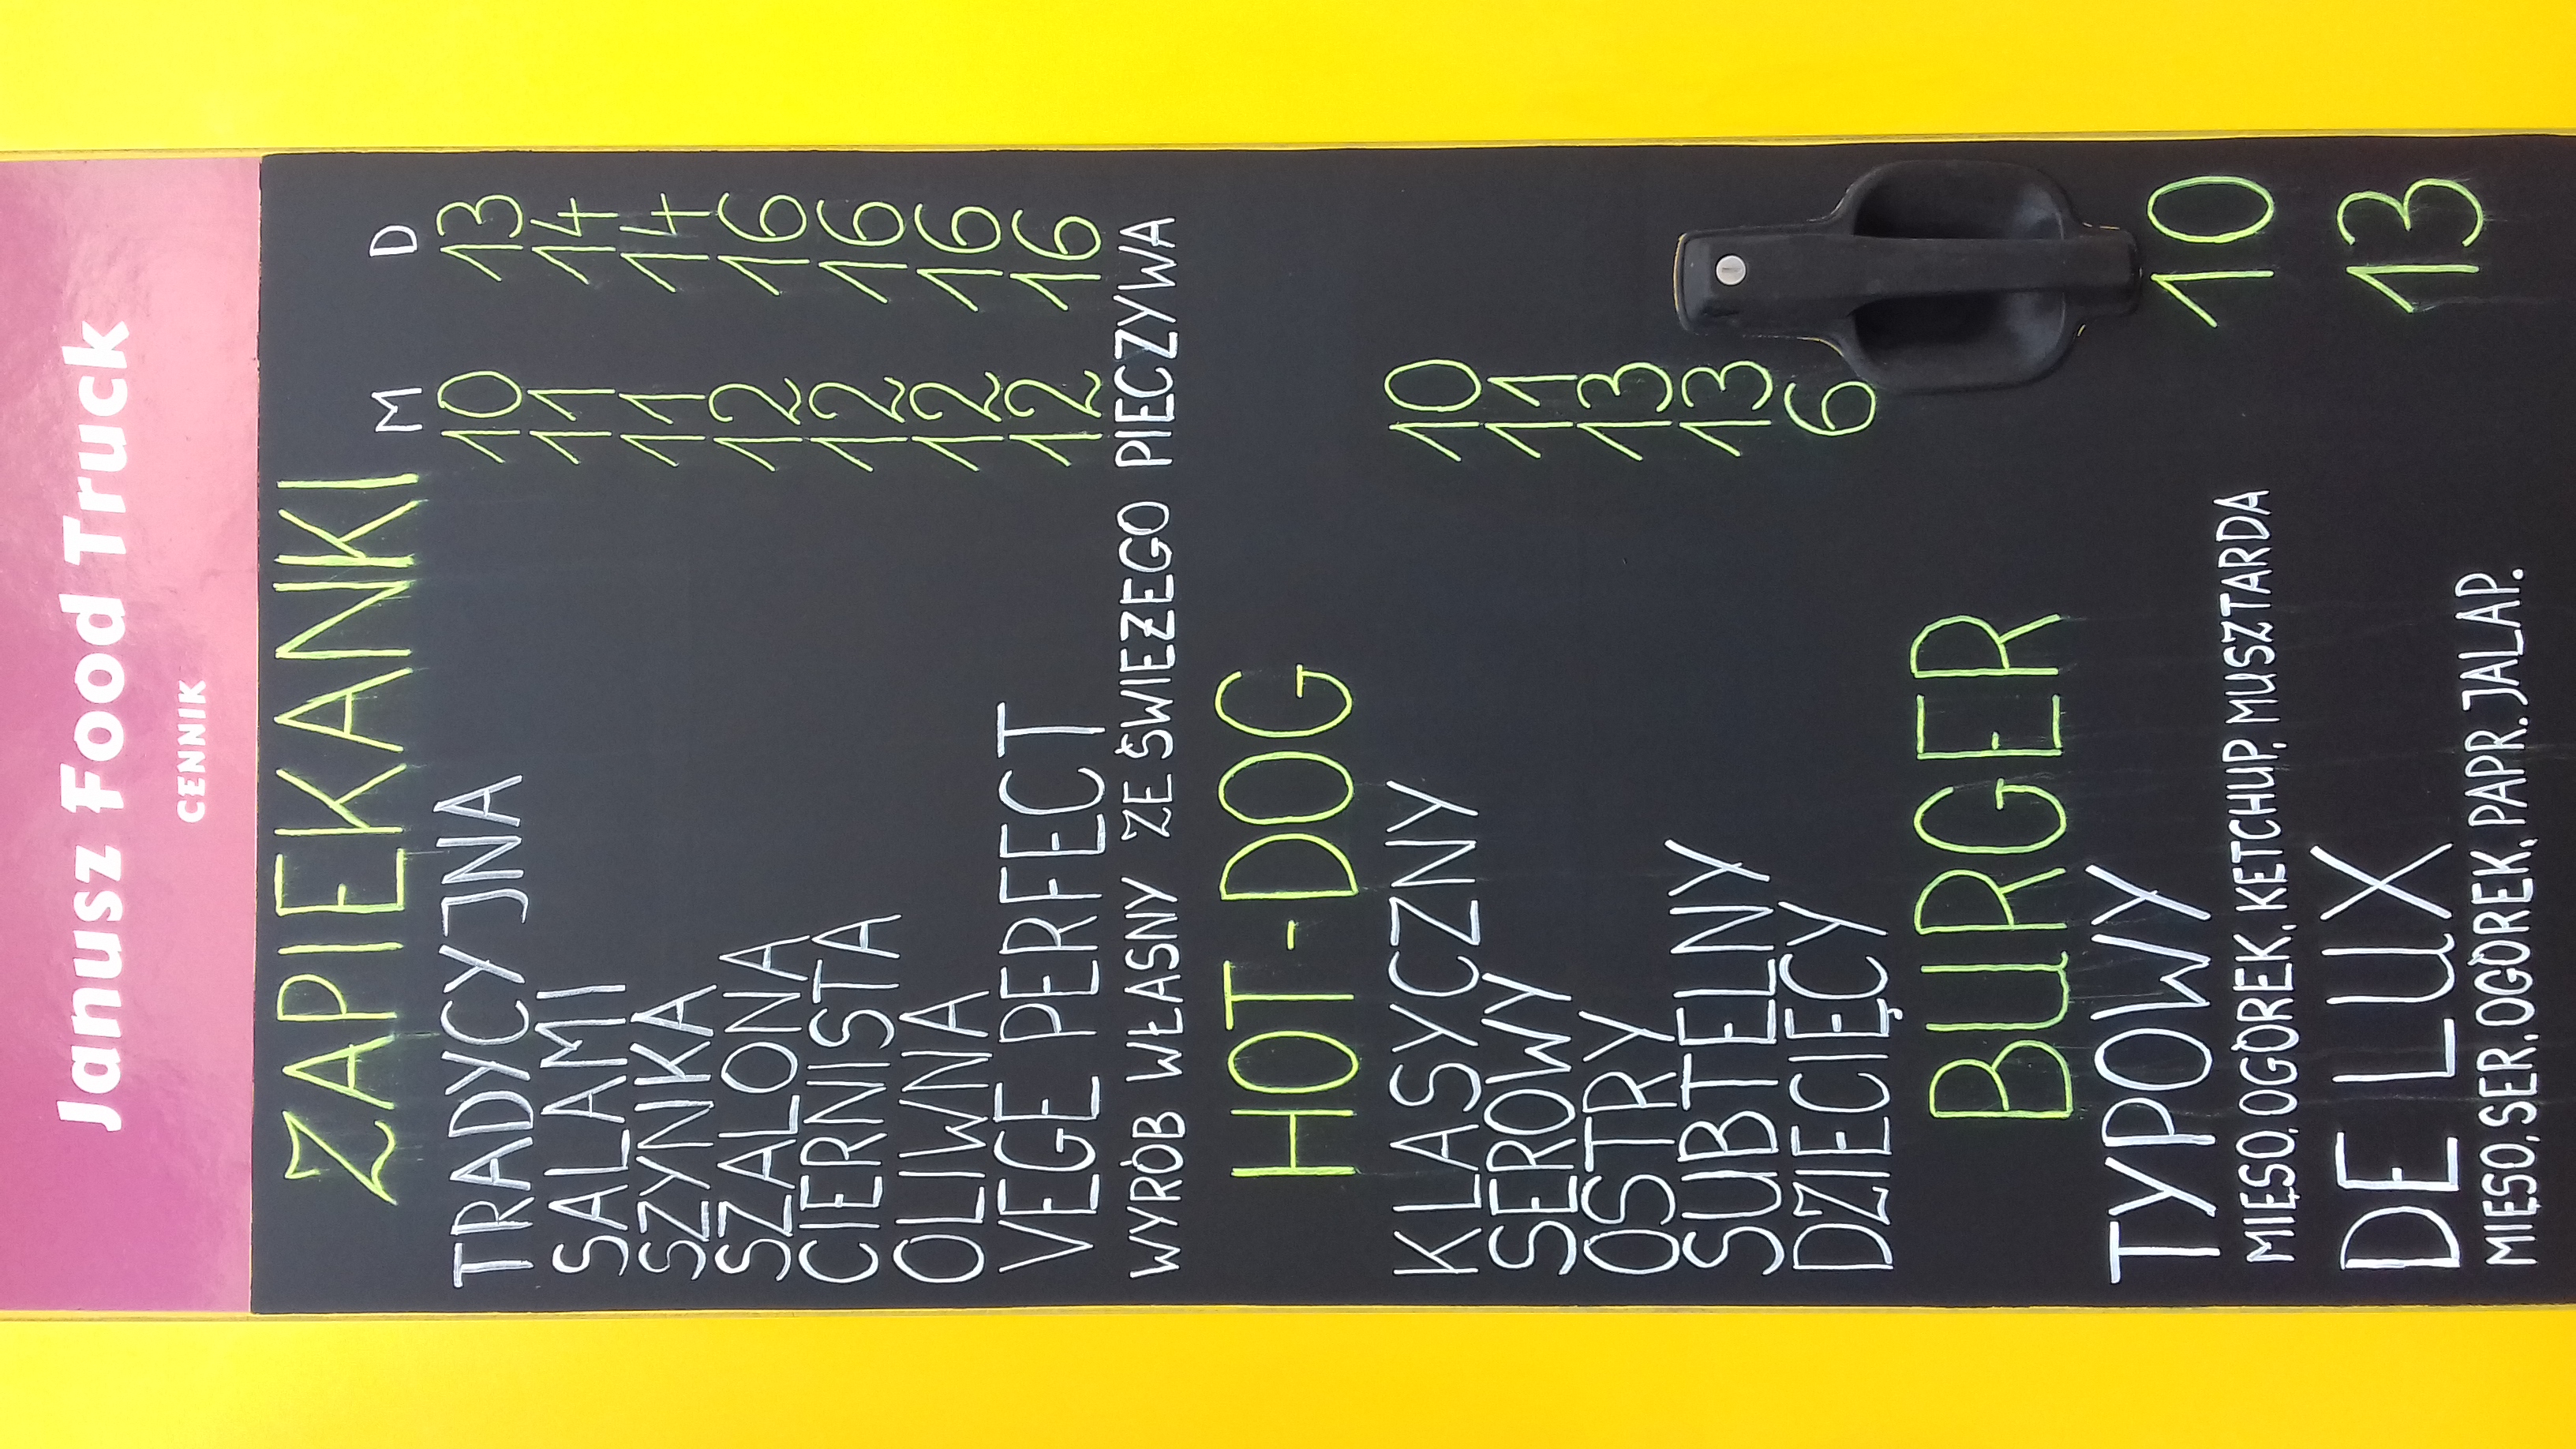 Janusz Food Truck
CENNIK
ZAPIEKANKI M D
TRADYCYJNA 10 13
SALAMI 11 14
SZYNKA 11 14
SZALONA 12 16
CIERNISTA 12 16
OLIWNA 12 16
VEGE PERFECT 12 16
WYRÓB WŁASNY ZE ŚWIEŻEGO PIECZYWA
HOT-DOG
KLASYCZNY 10
SEROWY 11
OSTRY 13
SUBTELNY 13
DZIECIĘCY 6
BURGER
TYPOWY 10
MIĘSO, OGÓREK, KETCHUP, MUSZTARDA
DE LUX 13
MIĘSO, SER, OGÓREK, PAPR. JALAP.